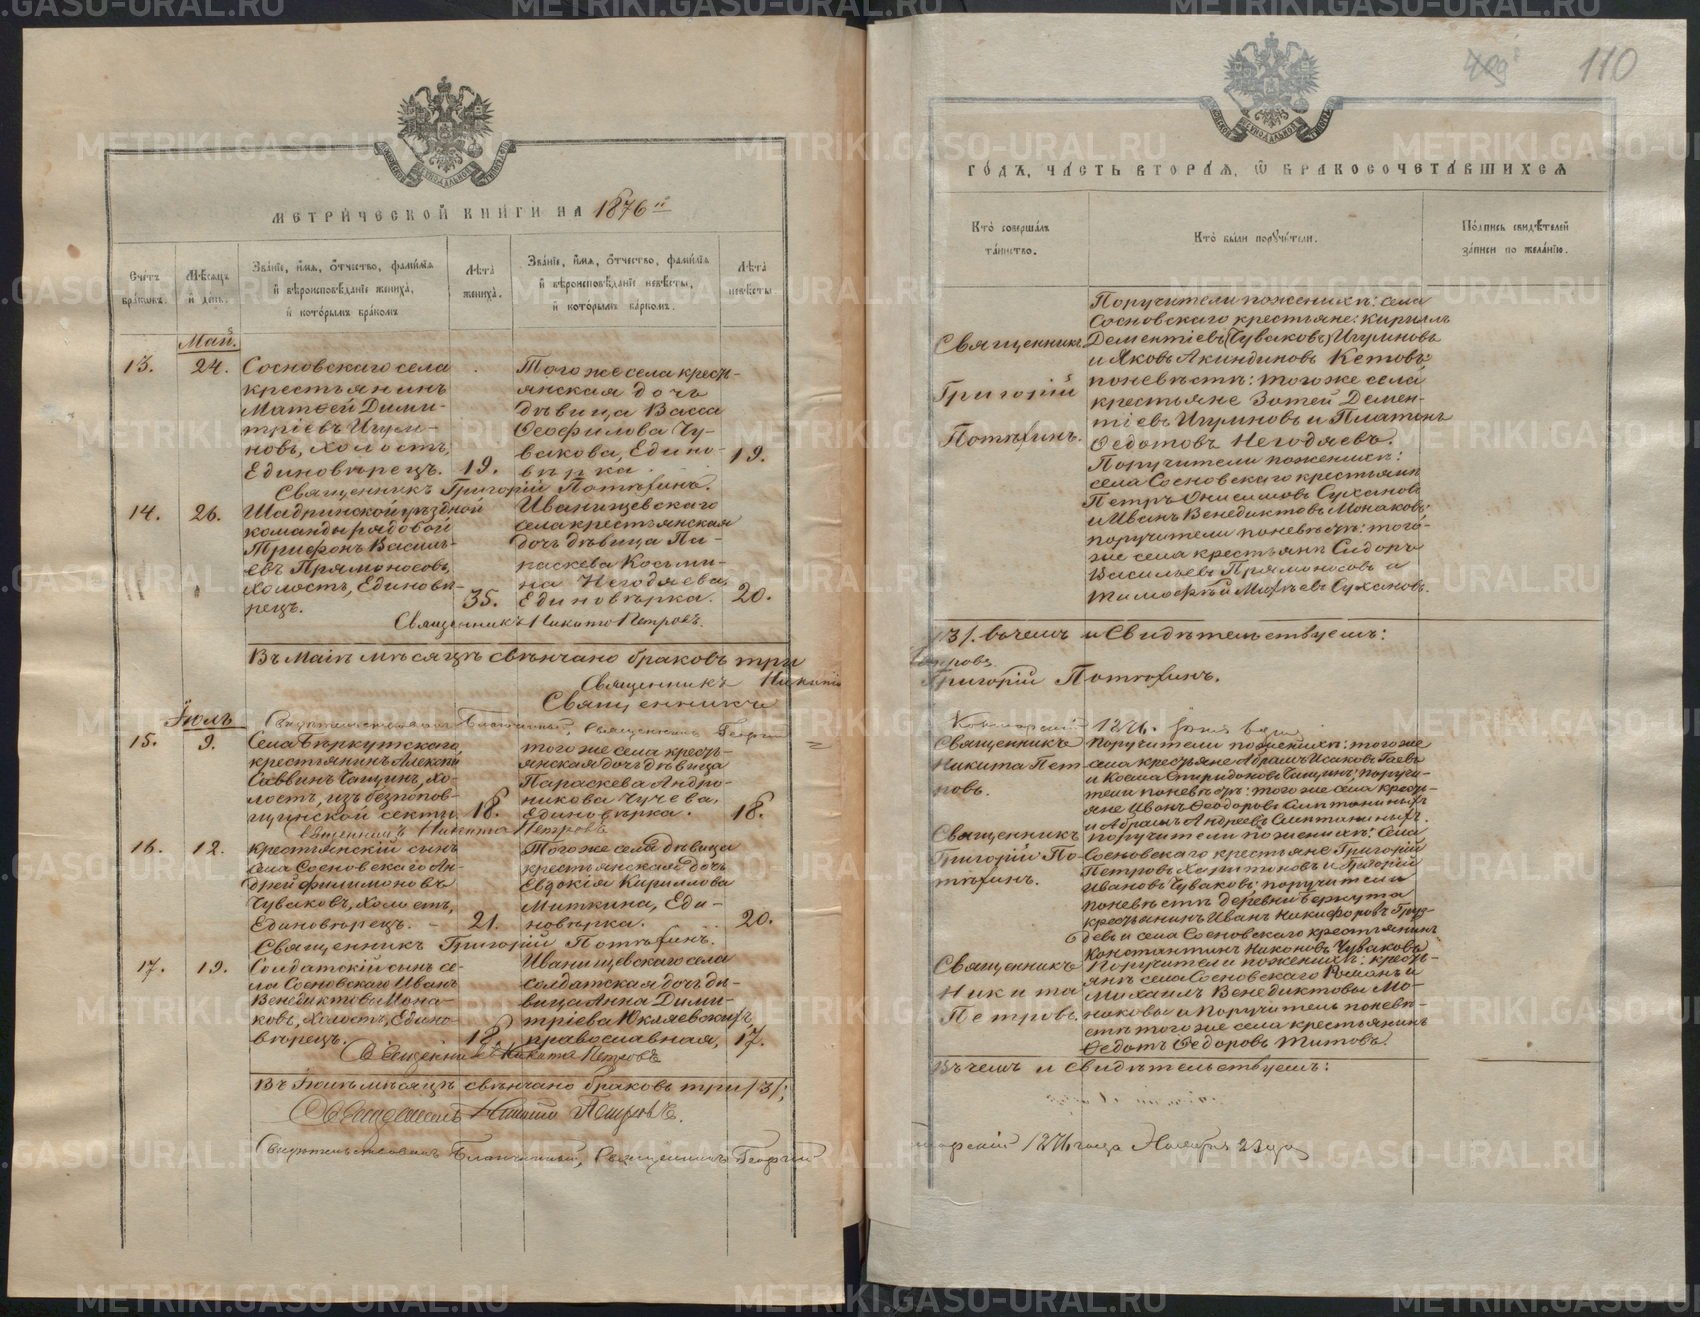 МЕТРИ́ЧЕСКОЙ КНИ́ГИ НА 1876й
Сче́тъ бра́ковъ.
Мѣ́сяцъ и́ день.
Зва́нїе, и́мя, о́тчество, фами́лїя
и́ вѣроисповѣ́данїе жениха̀,
и́ кото́рымъ бра́комъ
Лѣ́та жениха̀.
Зва́нїе, и́мя, о́тчество, фами́лїя
и́ вѣроисповѣ́данїе невѣ́сты,
и́ кото́рымъ бра́комъ.
Лѣ́та невѣ́сты.
Май.
13.
24.
Сосновскаго села
крестьянинъ
Матѳей Дими-
тріевъ Игуми-
новъ, холостъ,
Единовѣрецъ.
19.
Того же села кресть-
янская дочь
дѣвица Васса
Ѳеофилова Чу-
вакова, Едино-
вѣрка.
19.
Священникъ Григорій Потѣхинъ.
14.
26.
Шадринской уѣздной
команды рядовой
Трифонъ Василь-
евъ Прямоносовъ,
холостъ, Единовѣ-
рецъ.
35.
Иванищевскаго
села крестьянская
дочь дѣвица Па-
раскева Косьми-
на Негодяева,
Единовѣрка.
20.
Священникъ Никита Петровъ.
Въ Маiѣ мѣсяцѣ свѣнчано браковъ три
Священникъ Никита
Священникъ
Іюль
Свидѣтельствовалъ Благочинный, Священникъ Георгій
15.
9.
Села Беркутскаго,
крестьянинъ Алексѣй
Саввинъ Чащинъ, хо-
лостъ, изъ безпопов-
щинской секты.
18.
того же села кресть-
янская дочь дѣвица
Параскева Андро-
никова Чучева,
Единовѣрка.
18.
Священникъ Никита Петровъ
16.
12.
Крестьянскій сынъ
села Сосновскаго Ан-
дрей Филимоновъ
Чуваковъ, холостъ,
Единовѣрецъ.
21.
Того же села дѣвица
крестьянская дочь
Евдокія Кириллова
Миткина, Еди-
новѣрка.
20.
Священникъ Григорій Потѣхинъ.
17.
19.
Солдатскій сынъ се-
ла Сосновскаго Иванъ
Венедиктовъ Мона-
ковъ, холостъ, Едино-
вѣрецъ.
18.
Иванищевскаго села
солдатская дочь дѣ-
вица Анна Дими-
тріева Юкляевскихъ,
православная,
17.
Священникъ Никита Петровъ
Въ Іюлѣ мѣсяцѣ свѣнчано браковъ три /3/;
Священникъ Никита Петровъ.
Свидѣтельствовалъ Благочинный, Священникъ Георгій
110
ГО́ДЪ, ЧА́СТЬ ВТОРА́Я, Ѡ БРАКОСОЧЕТА́ВШИХСЯ
Кто̀ соверша́лъ
та́инство.
Кто̀ бы́ли поручи́тели.
По́дпись свидѣ́телей
за́писи по жела́нїю.
Священникъ
Григорій
Потѣхинъ.
Поручители по женихѣ: села
Сосновскаго крестьяне: Кириллъ
Дементіевъ (Чуваковъ) Игуминовъ
и Яковъ Акиндиновъ Кетовъ;
по невѣстѣ: того же села
крестьяне Зотей Демен-
тіевъ Игуминовъ и Платонъ
Ѳедотовъ Негодяевъ.
Поручители по женихѣ:
села Сосновскаго крестьяне
Петръ Онисимовъ Сухановъ
и Иванъ Венедиктовъ Монаковъ;
поручители по невѣстѣ: того-
же села крестьяне Сидоръ
Васильевъ Прямоносовъ и
Тимоѳей Сухановъ.
/3/. въ чемъ и Свидѣтельствуемъ:
Петровъ
Григорій Потѣхинъ.
Священникъ
Никита Пет-
ровъ.
Поручители по женихѣ: того же
села крестьяне Абрамъ Исаковъ Гаевъ
и Косма Спиридоновъ Чащинъ; поручи-
тели по невѣстѣ: того же села кресть-
яне Иванъ Ѳеодоровъ
и Абрамъ Андреевъ
Священникъ
Григорій По-
тѣхинъ.
Поручители по женихѣ: села
Сосновскаго крестьяне Григорій
Петровъ Харитоновъ и Григорій
Ивановъ Чуваковъ; поручители
по невѣстѣ деревни Беркута
крестьянинъ Иванъ Никифоровъ Груз-
девъ и села Сосновскаго крестьянинъ
Константинъ Никоновъ Чуваковъ
Священникъ
Никита
Петровъ.
Поручители по женихѣ: кресть-
яне села Сосновскаго Романъ и
Михаилъ Венедиктовы Мо-
наковы и поручитель по невѣ-
стѣ того же села крестьянинъ
Ѳедотъ Ѳедоровъ Титовъ.
Въ чемъ и Свидѣтельствуемъ:
1876 года Ноября 23 дня
METRIKI.GASO-URAL.RU